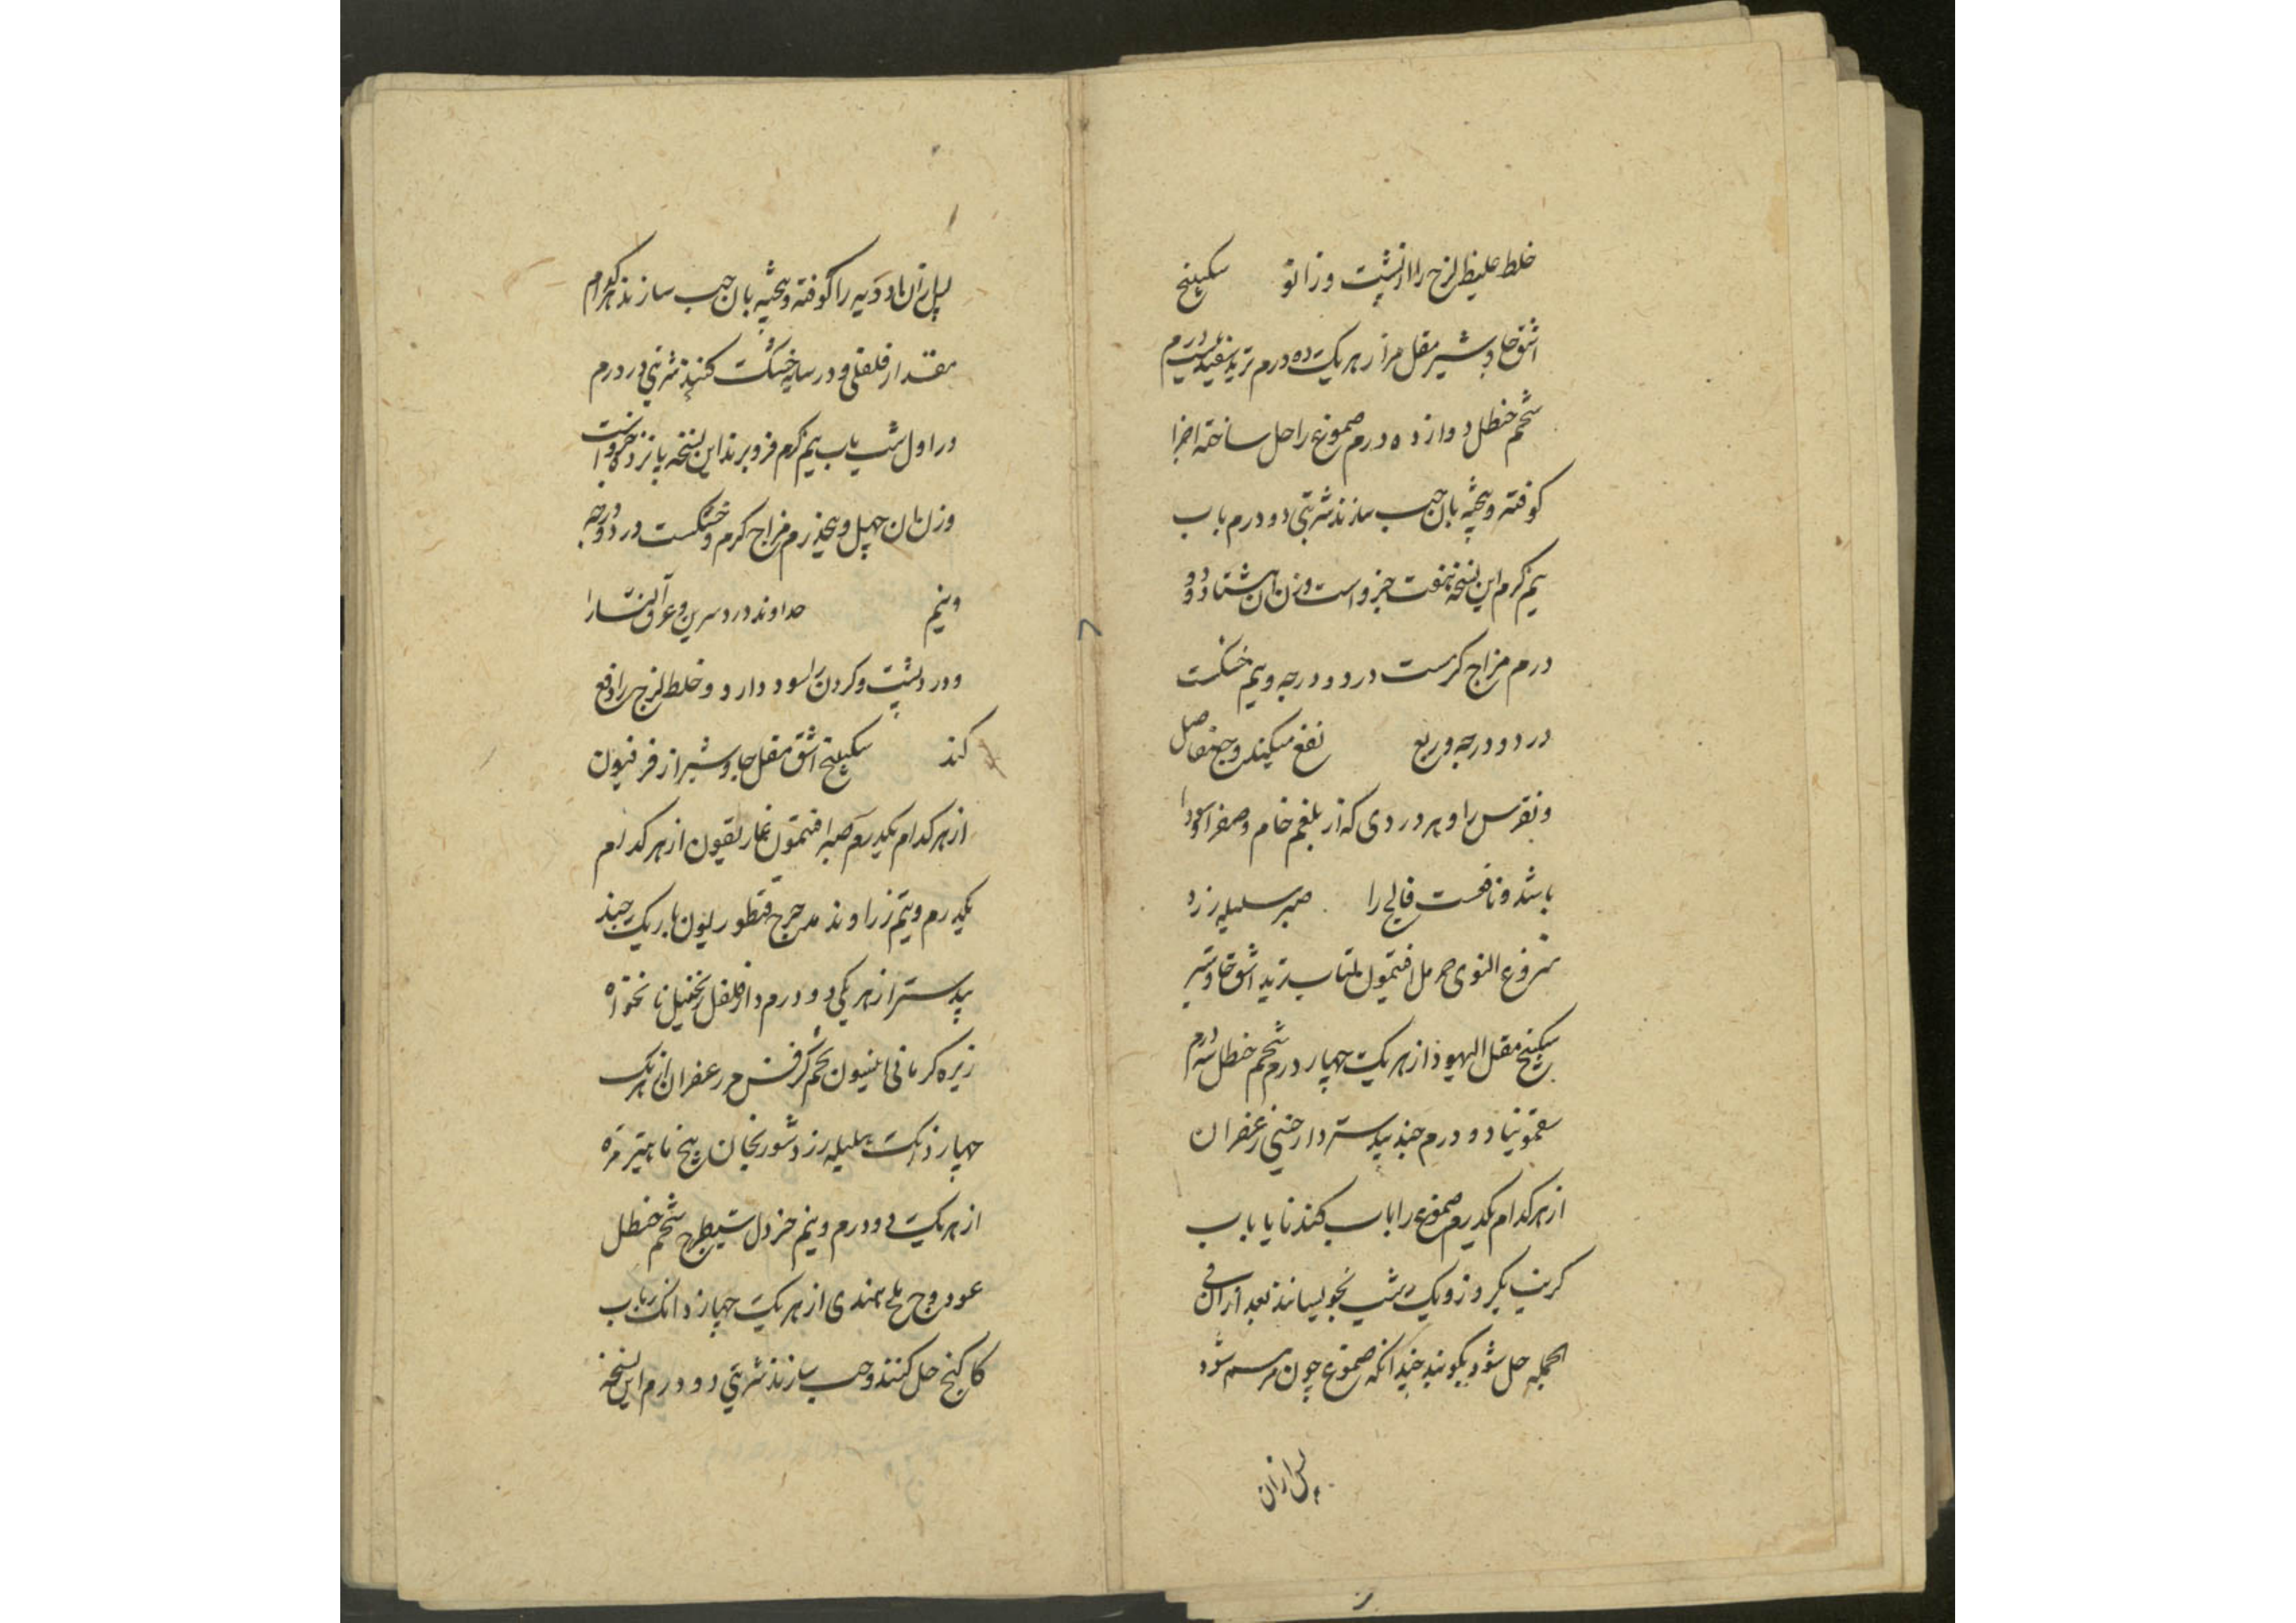 خلط غلیظ لزج را از پشت و زانو سکبینج
اشق جاوشیر مقل مر از هر یک ده درم تربد سفید بیست درم
شحم حنظل دوازده درم صموغ را حل ساخته اجزا
کوفته و بیخته بان حب سازند شربتی دو درم باب
نیم کرم این نسخه هفت جزو است وزن ان هشتاد و دو
درم مزاج کرمست در دو درجه و نیم خشکست
در دو درجه و ربع نفع میکند وجع مفاصل
و نقرس را و هر دردی که از بلغم خام و صفرا سودا
باشد و نافعست فالج را صبر هلیله زرد
منزوع النوی حرمل افتیمون تربد اشق جاوشیر
سکبینج مقل الیهود از هر یک چهار درم شحم حنظل سه درم
سقمونیا دو درم جند بیدستر دارچینی زعفران
از هر کدام یکدرم صموغ را باب کندنا یا باب
کرنب یکروز و یک شب بخویسانند بعد از ان فی
الجمله حل شود بکوبند چندانکه صموغ چون مرهم شود
پس ازان
پس ازان ادویه را کوفته و بیخته بان حب سازند هر کدام
مقدار فلفلی و در سایه خشک کنند شربتی دو درم
در اول شب باب نیم کرم فرو برند این نسخه پانزده جزو است
وزن ان چهل و پنجدرم مزاج کرم و خشکست در دو درجه
و نیم خداوند درد سرین و عرق النسا را
و درد پشت و کردن را سود دارد و خلط لزج را دفع
کند سکبینج اشق مقل جاوشیر از فرفیون
از هر کدام یکدرم صبر افتیمون غاریقون از هر کدام
یکدرم و نیم زراوند مدحرج قنطوریون باریک جند
بیدستر از هر یکی دو درم دارفلفل زنجبیل نانخواه
زیره کرمانی انیسون تخم کرفس مر زعفران از هر یک
چهار دانک هلیله زرد سورنجان
از هر یک دو درم و نیم خردل شیطرج شحم حنظل
عود وج ملح هندی از هر یک چهار دانک باب
کاکنج حل کنند و حب سازند شربتی دو درم این نسخه